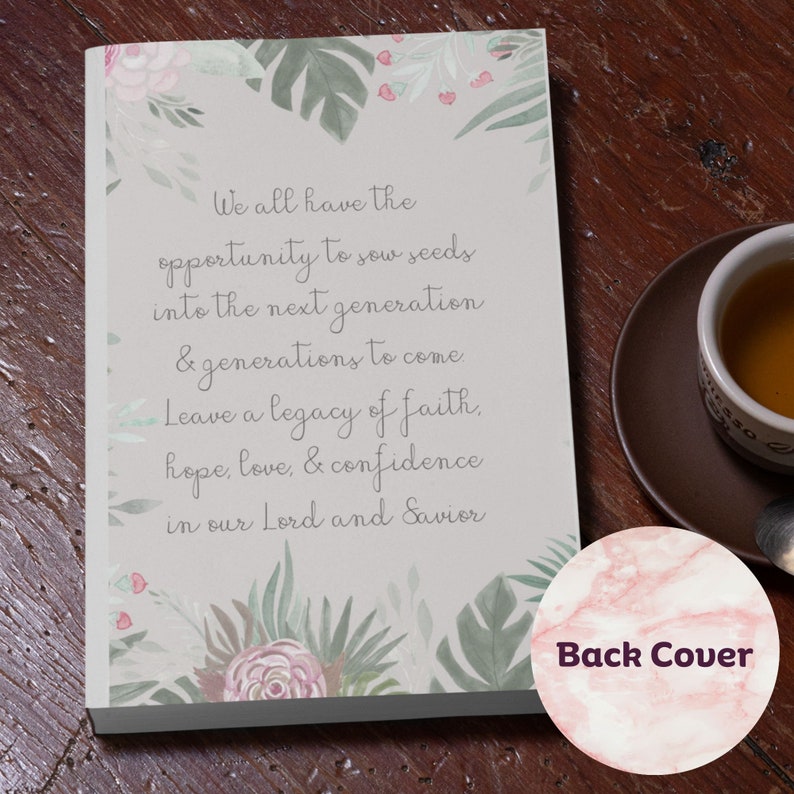 We all have the
opportunity to sow seeds
into the next generation
& generations to come.
Leave a legacy of faith,
hope, love, & confidence
in our Lord and Savior
Back Cover